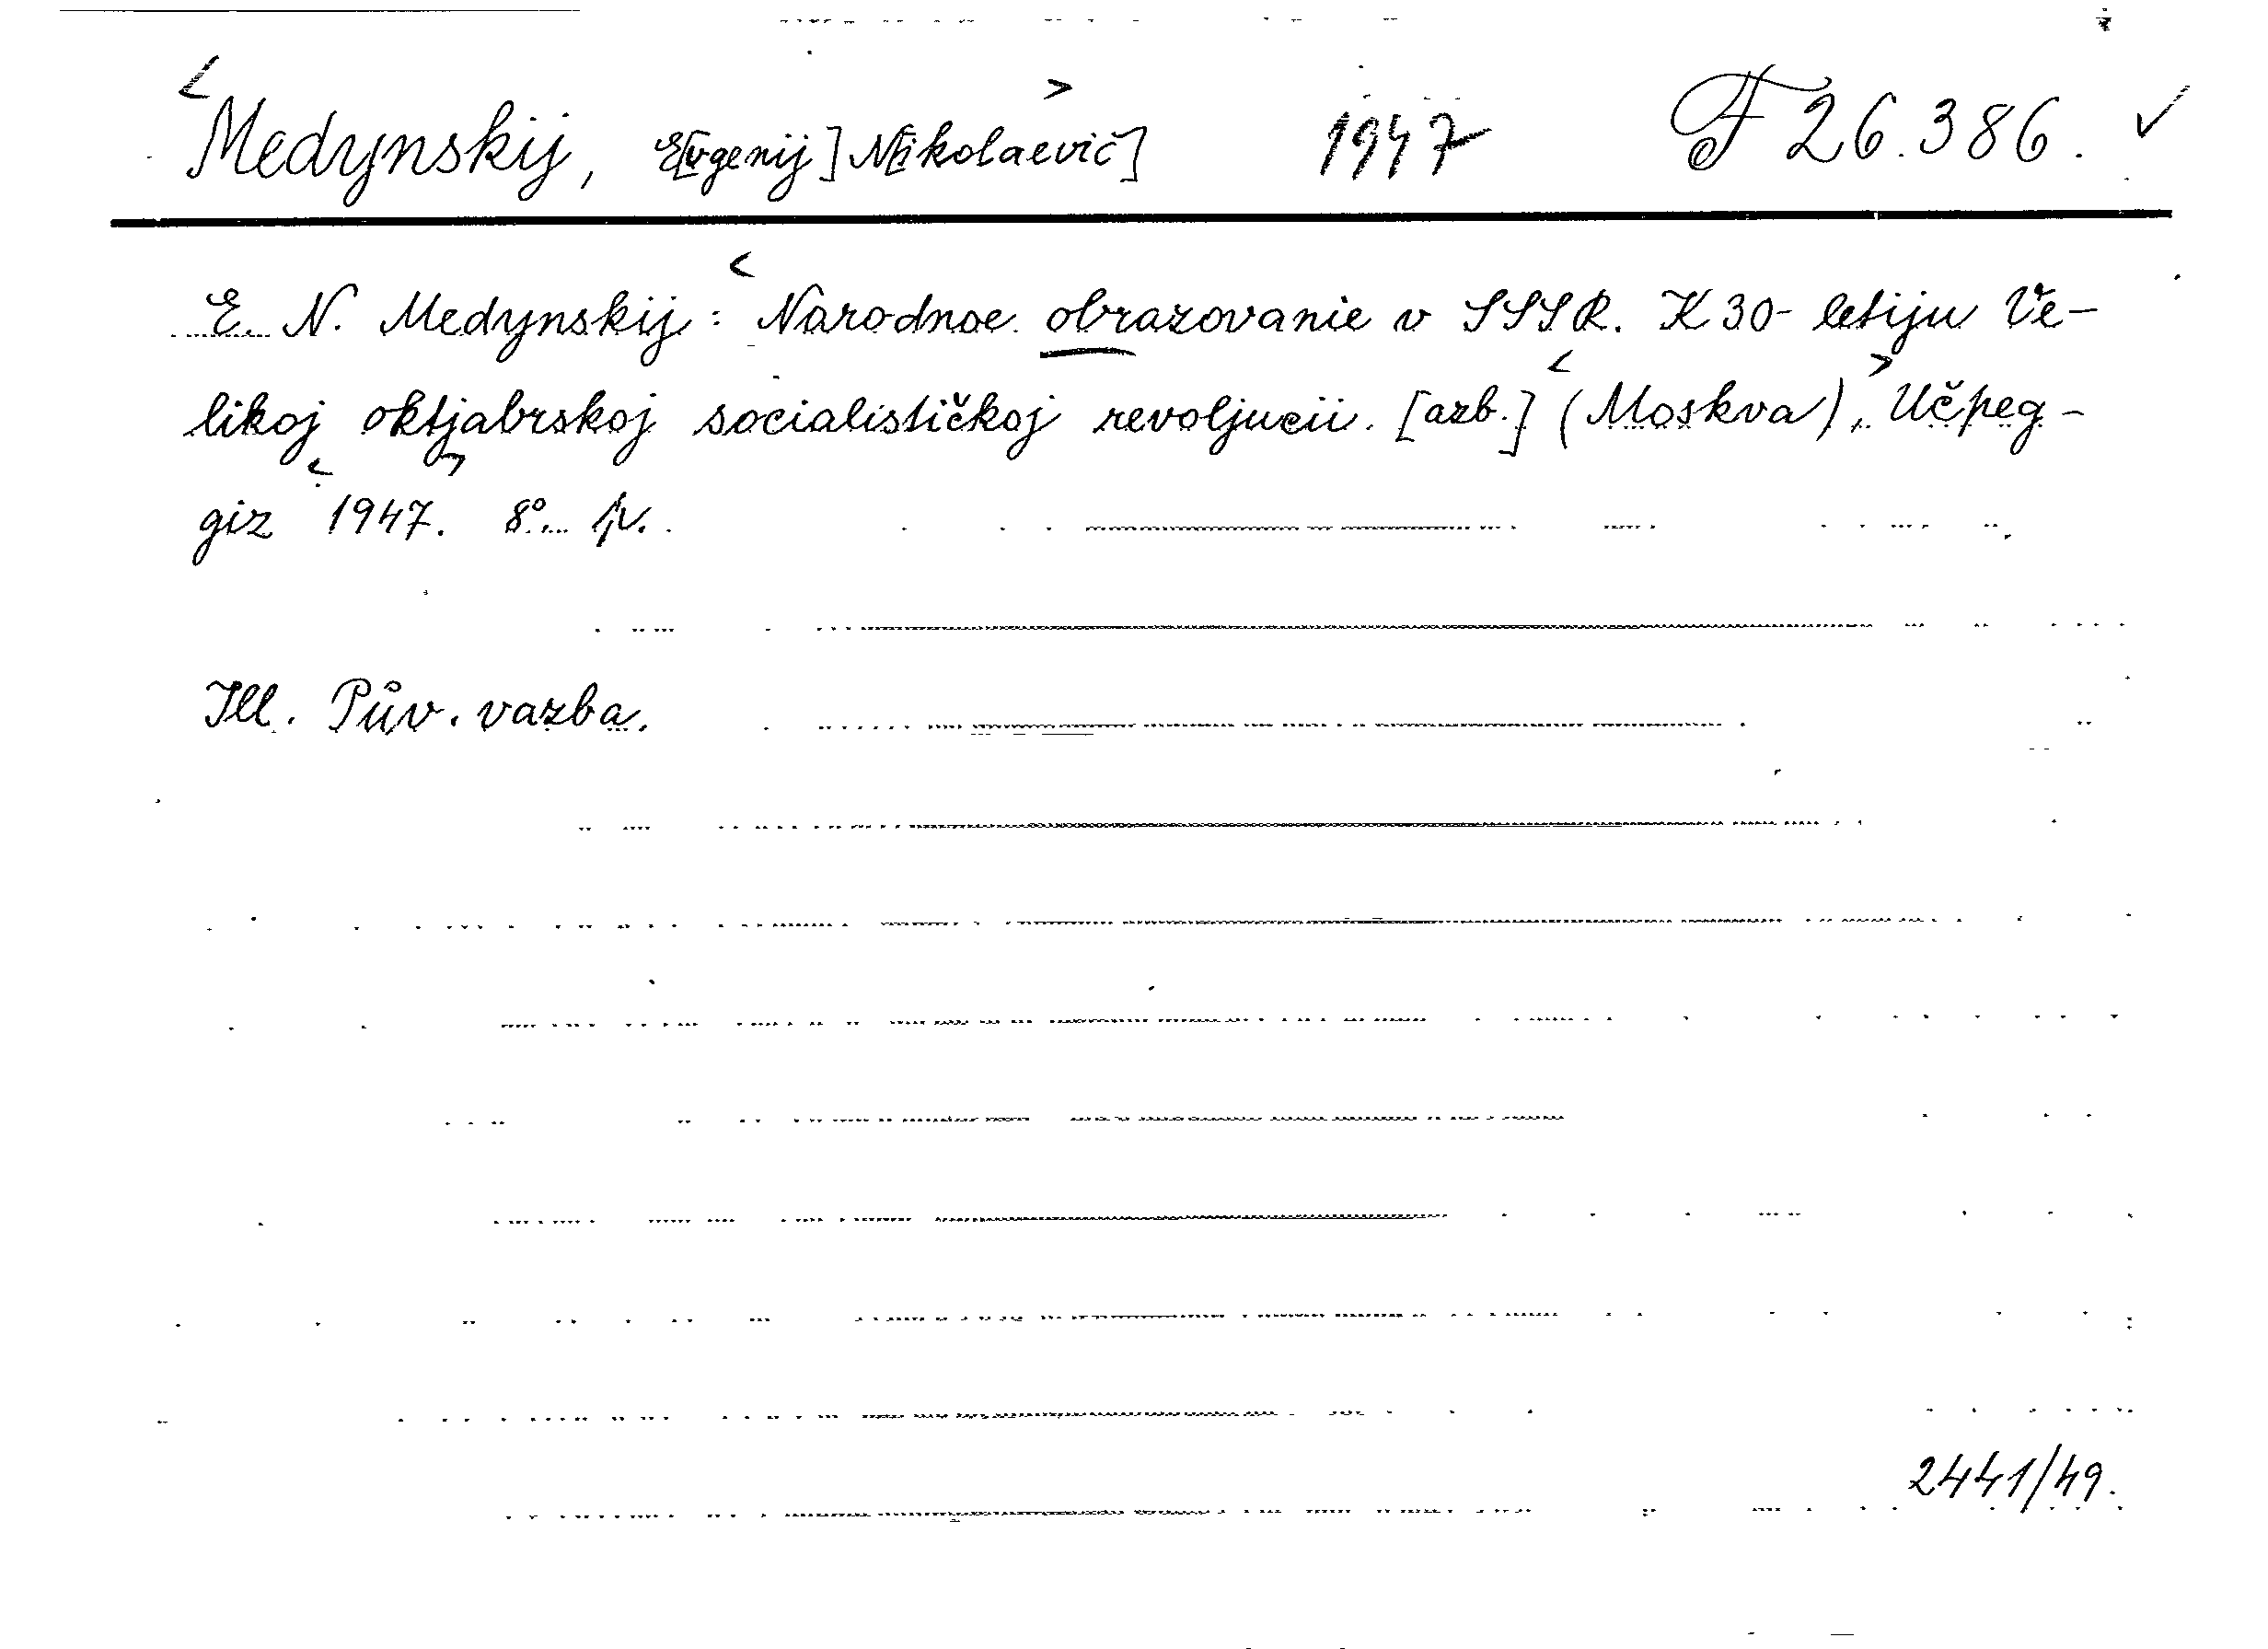 <Medynskij, E[vgenij] N[ikolaevič]> 1947 F 26.386. ✓
E. N. Medynskij: <Narodnoe obrazovanie v SSSR. K 30-letiju Ve-
likoj oktjabrskoj socialističkoj revoljucii. [azb.] <(Moskva),> Učpeg-
giz <1947>. 8°. 
Ill. Pův. vazba.
2441/49.